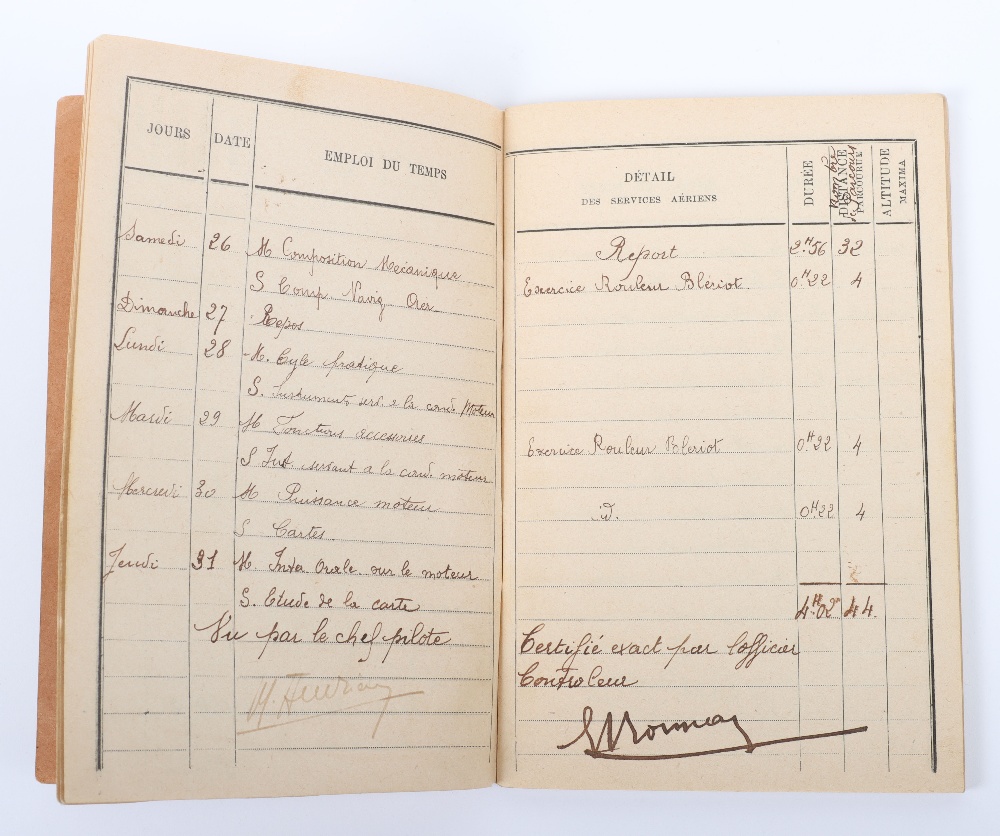 JOURS DATE EMPLOI DU TEMPS
Samedi 26 M Composition Mécanique
S Comp. Navig Orer
Dimanche 27 Repos
Lundi 28 M. Cyle pratique
S. instruments serv. a la cond. Moteur
Mardi 29 M Fonctions accessoires
S Inst. servant a la cond. moteur
Mercredi 30 M Puissance moteur
S Cartes
Jeudi 31 M. Inter Orale sur le moteur
S. Etude de la carte
Vu par le chef pilote
DÉTAIL DES SERVICES AÉRIENS DURÉE DISTANCE PARCOURUE Nombre de Parcours ALTITUDE MAXIMA
Report 2H.56 32
Exercice Rouleur Blériot 0H22 4
Exercice Rouleur Blériot 0H.22 4
id. 0H22 4
4H.02 44.
Certifié exact par l'officier
Controleur